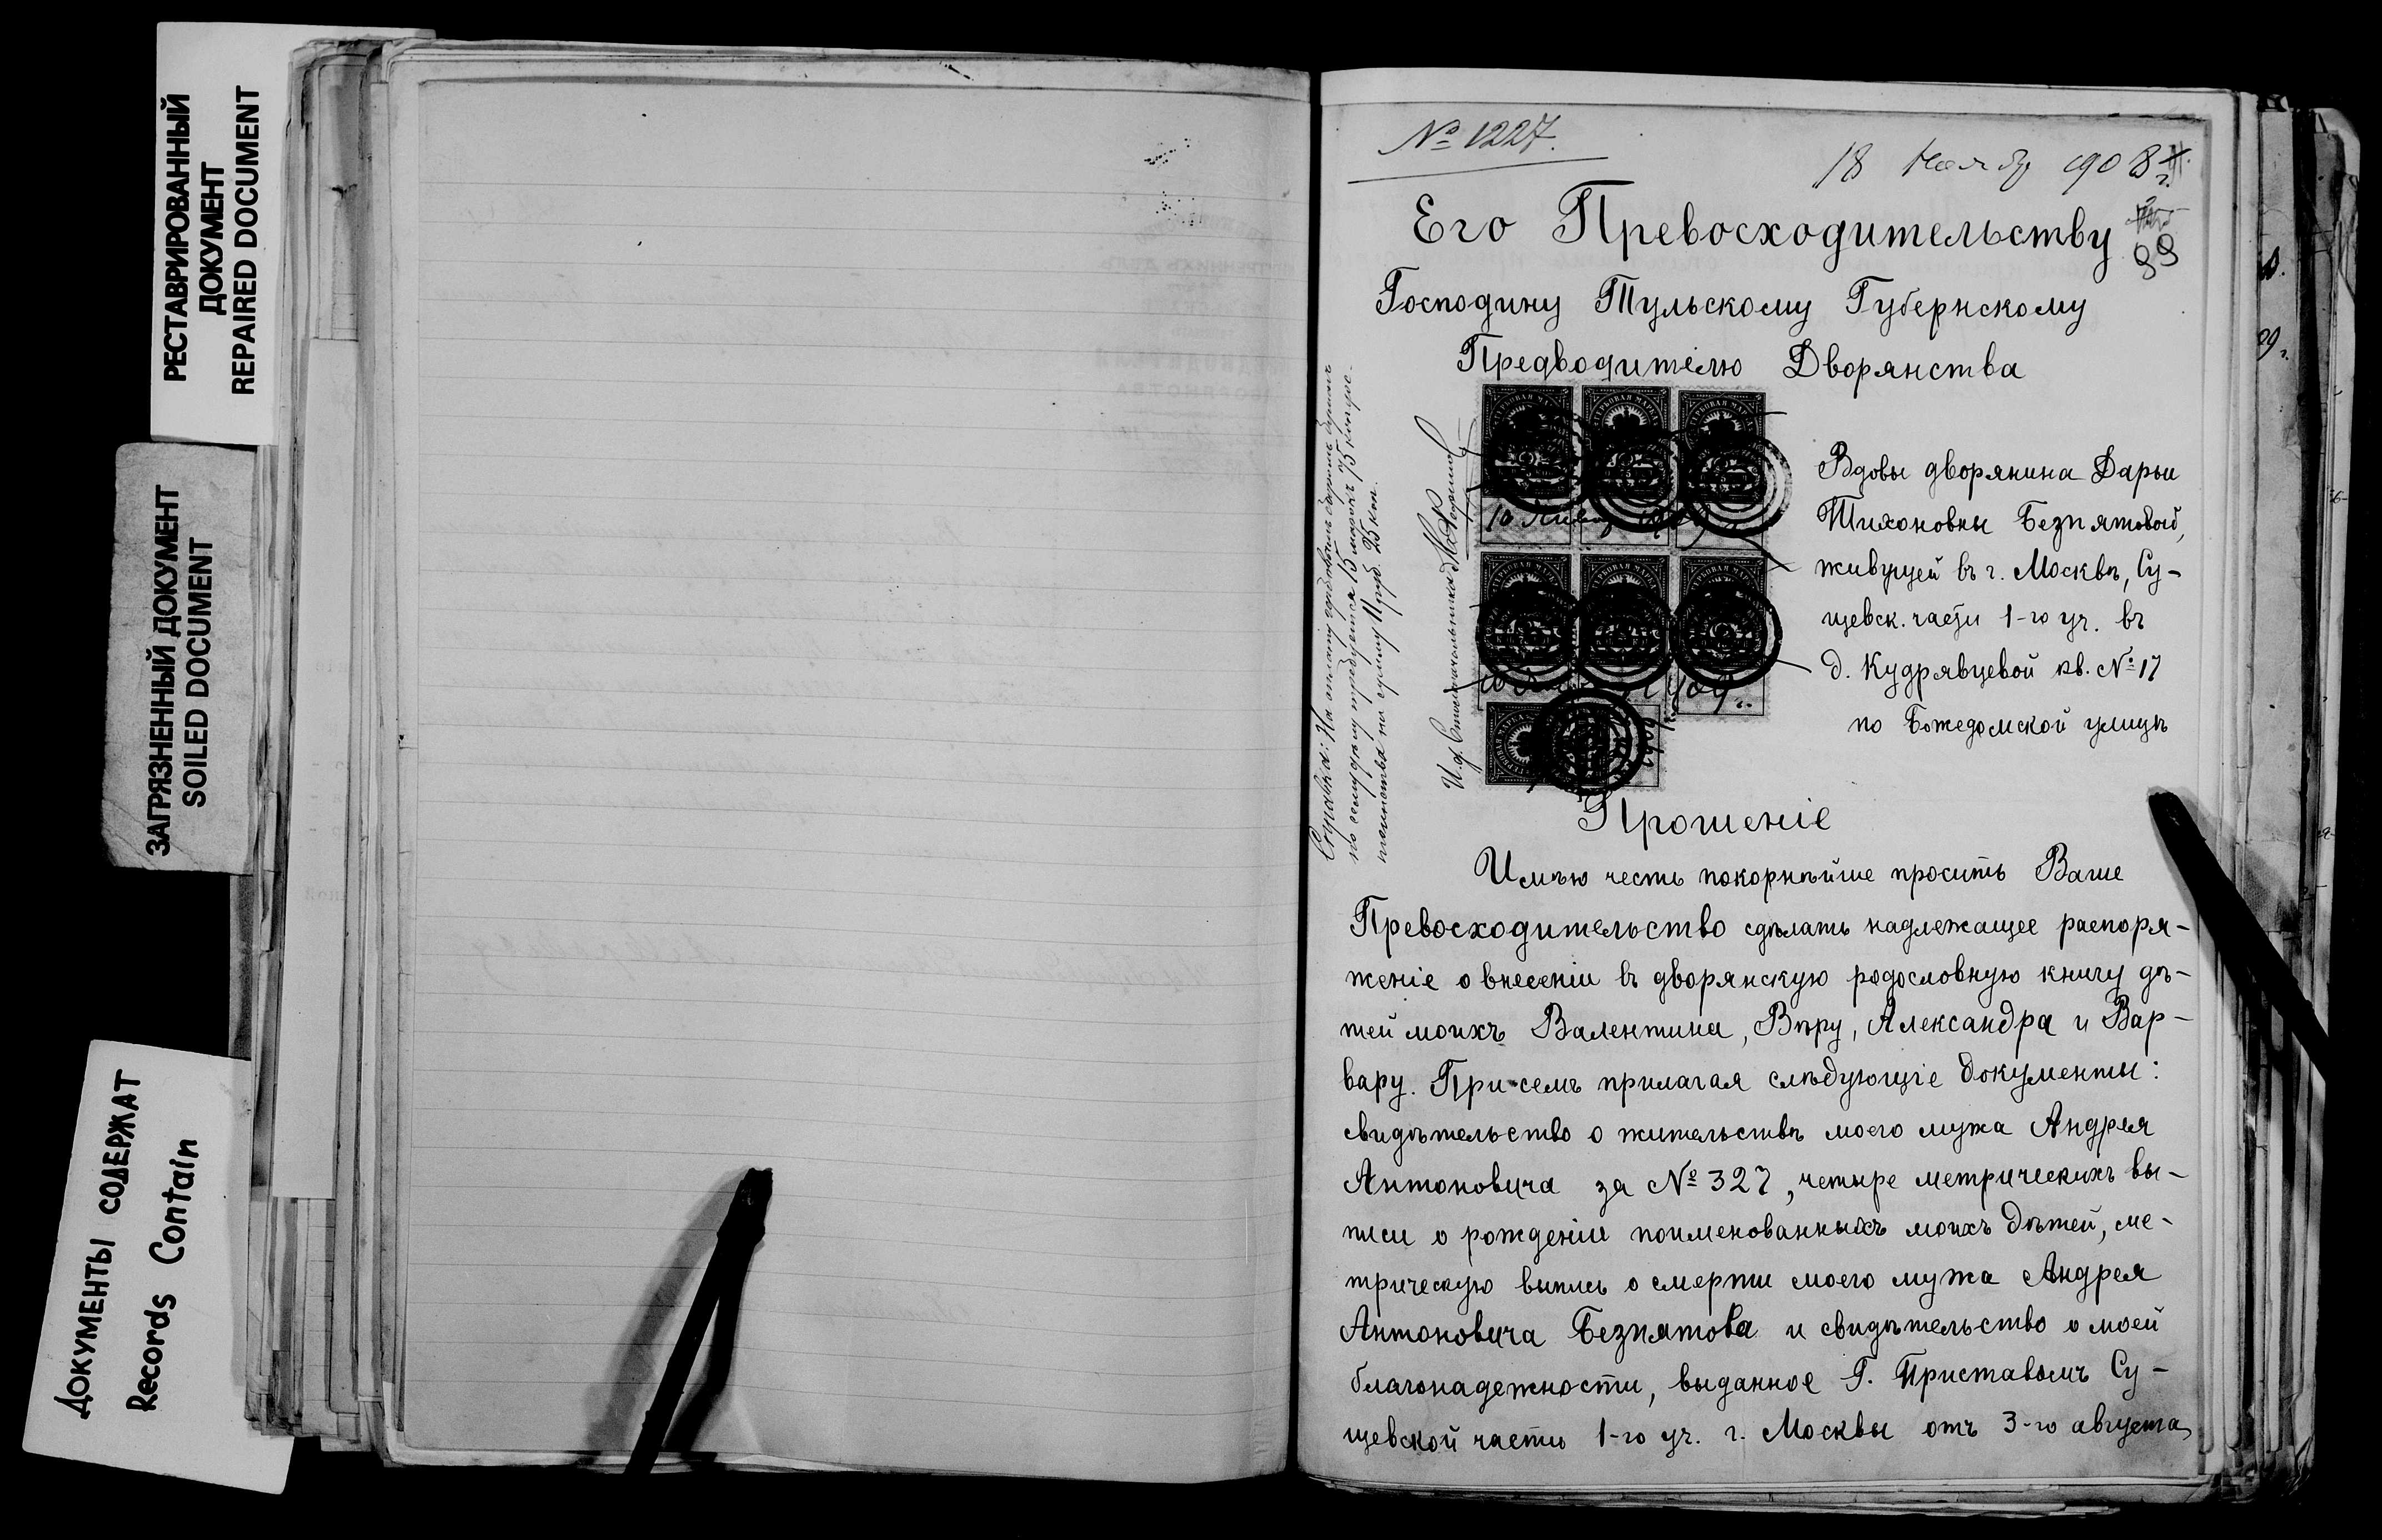 РЕСТАВРИРОВАННЫЙ
ДОКУМЕНТ
REPAIRED DOCUMENT
ЗАГРЯЗНЕННЫЙ ДОКУМЕНТ
SOILED DOCUMENT
ДОКУМЕНТЫ СОДЕРЖАТ
Records Contain
№ 1227.
18 Ноябр 1908 г.
Его Превосходительству
99
Господину Тульскому Губернскому
Предводителю Дворянства
Справка: На оплату гербовым сбором бумаг
по сему делу требуется 15 марок 75 коп. дос-
тоинства на сумму 11 руб. 25 коп.
И. д. Столоначальника
ГЕРБОВАЯ МАРКА
10 Январ 1909 г.
10 1909 г.
Вдовы дворянина Дарьи
Тихоновны Безпятовой,
живущей въ г. Москвѣ, Су-
щевск. части 1-го уч. въ
д. Кудрявцевой кв. № 17
по Божедомской улицѣ
Прошеніе
Имѣю честь покорнѣйше просить Ваше
Превосходительство сдѣлать надлежащее распоря-
женіе о внесеніи въ дворянскую родословную книгу дѣ-
тей моихъ Валентина, Вѣру, Александра и Вар-
вару. При семъ прилагая слѣдующіе документы:
свидѣтельство о жительствѣ моего мужа Андрея
Антоновича за № 327, четыре метрическихъ вы-
писи о рожденіи поименованныхъ моихъ дѣтей, ме-
трическую выпись о смерти моего мужа Андрея
Антоновича Безпятова и свидѣтельство о моей
благонадежности, выданное Г. Приставомъ Су-
щевской части 1-го уч. г. Москвы отъ 3-го августа